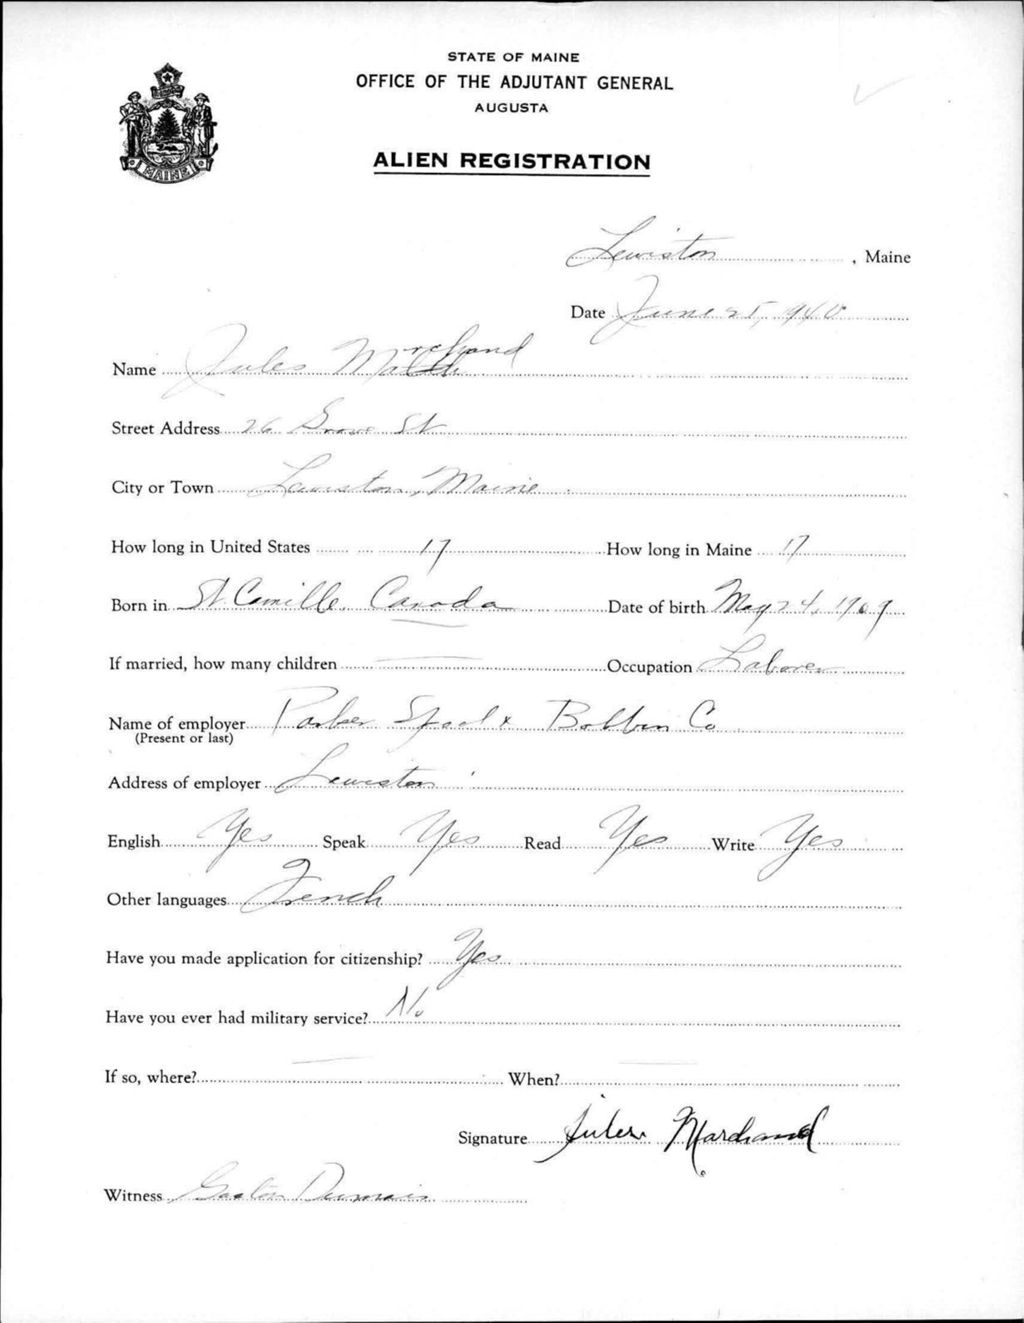 STATE OF MAINE
OFFICE OF THE ADJUTANT GENERAL
AUGUSTA
MAINE
ALIEN REGISTRATION
Lewiston, Maine
Date June 25, 1940
Name Jules Marchand
Street Address 26 Grove St
City or Town Lewiston, Maine
How long in United States 17 How long in Maine 17
Born in St Camille, Canada Date of birth May 24, 1909
If married, how many children — Occupation Laborer
Name of employer Parker Spool & Bobbin Co
(Present or last)
Address of employer Lewiston
English Yes Speak Yes Read Yes Write Yes
Other languages French
Have you made application for citizenship? Yes
Have you ever had military service? No
If so, where? — When? —
Signature Jules Marchand
Witness Gaston Dumais